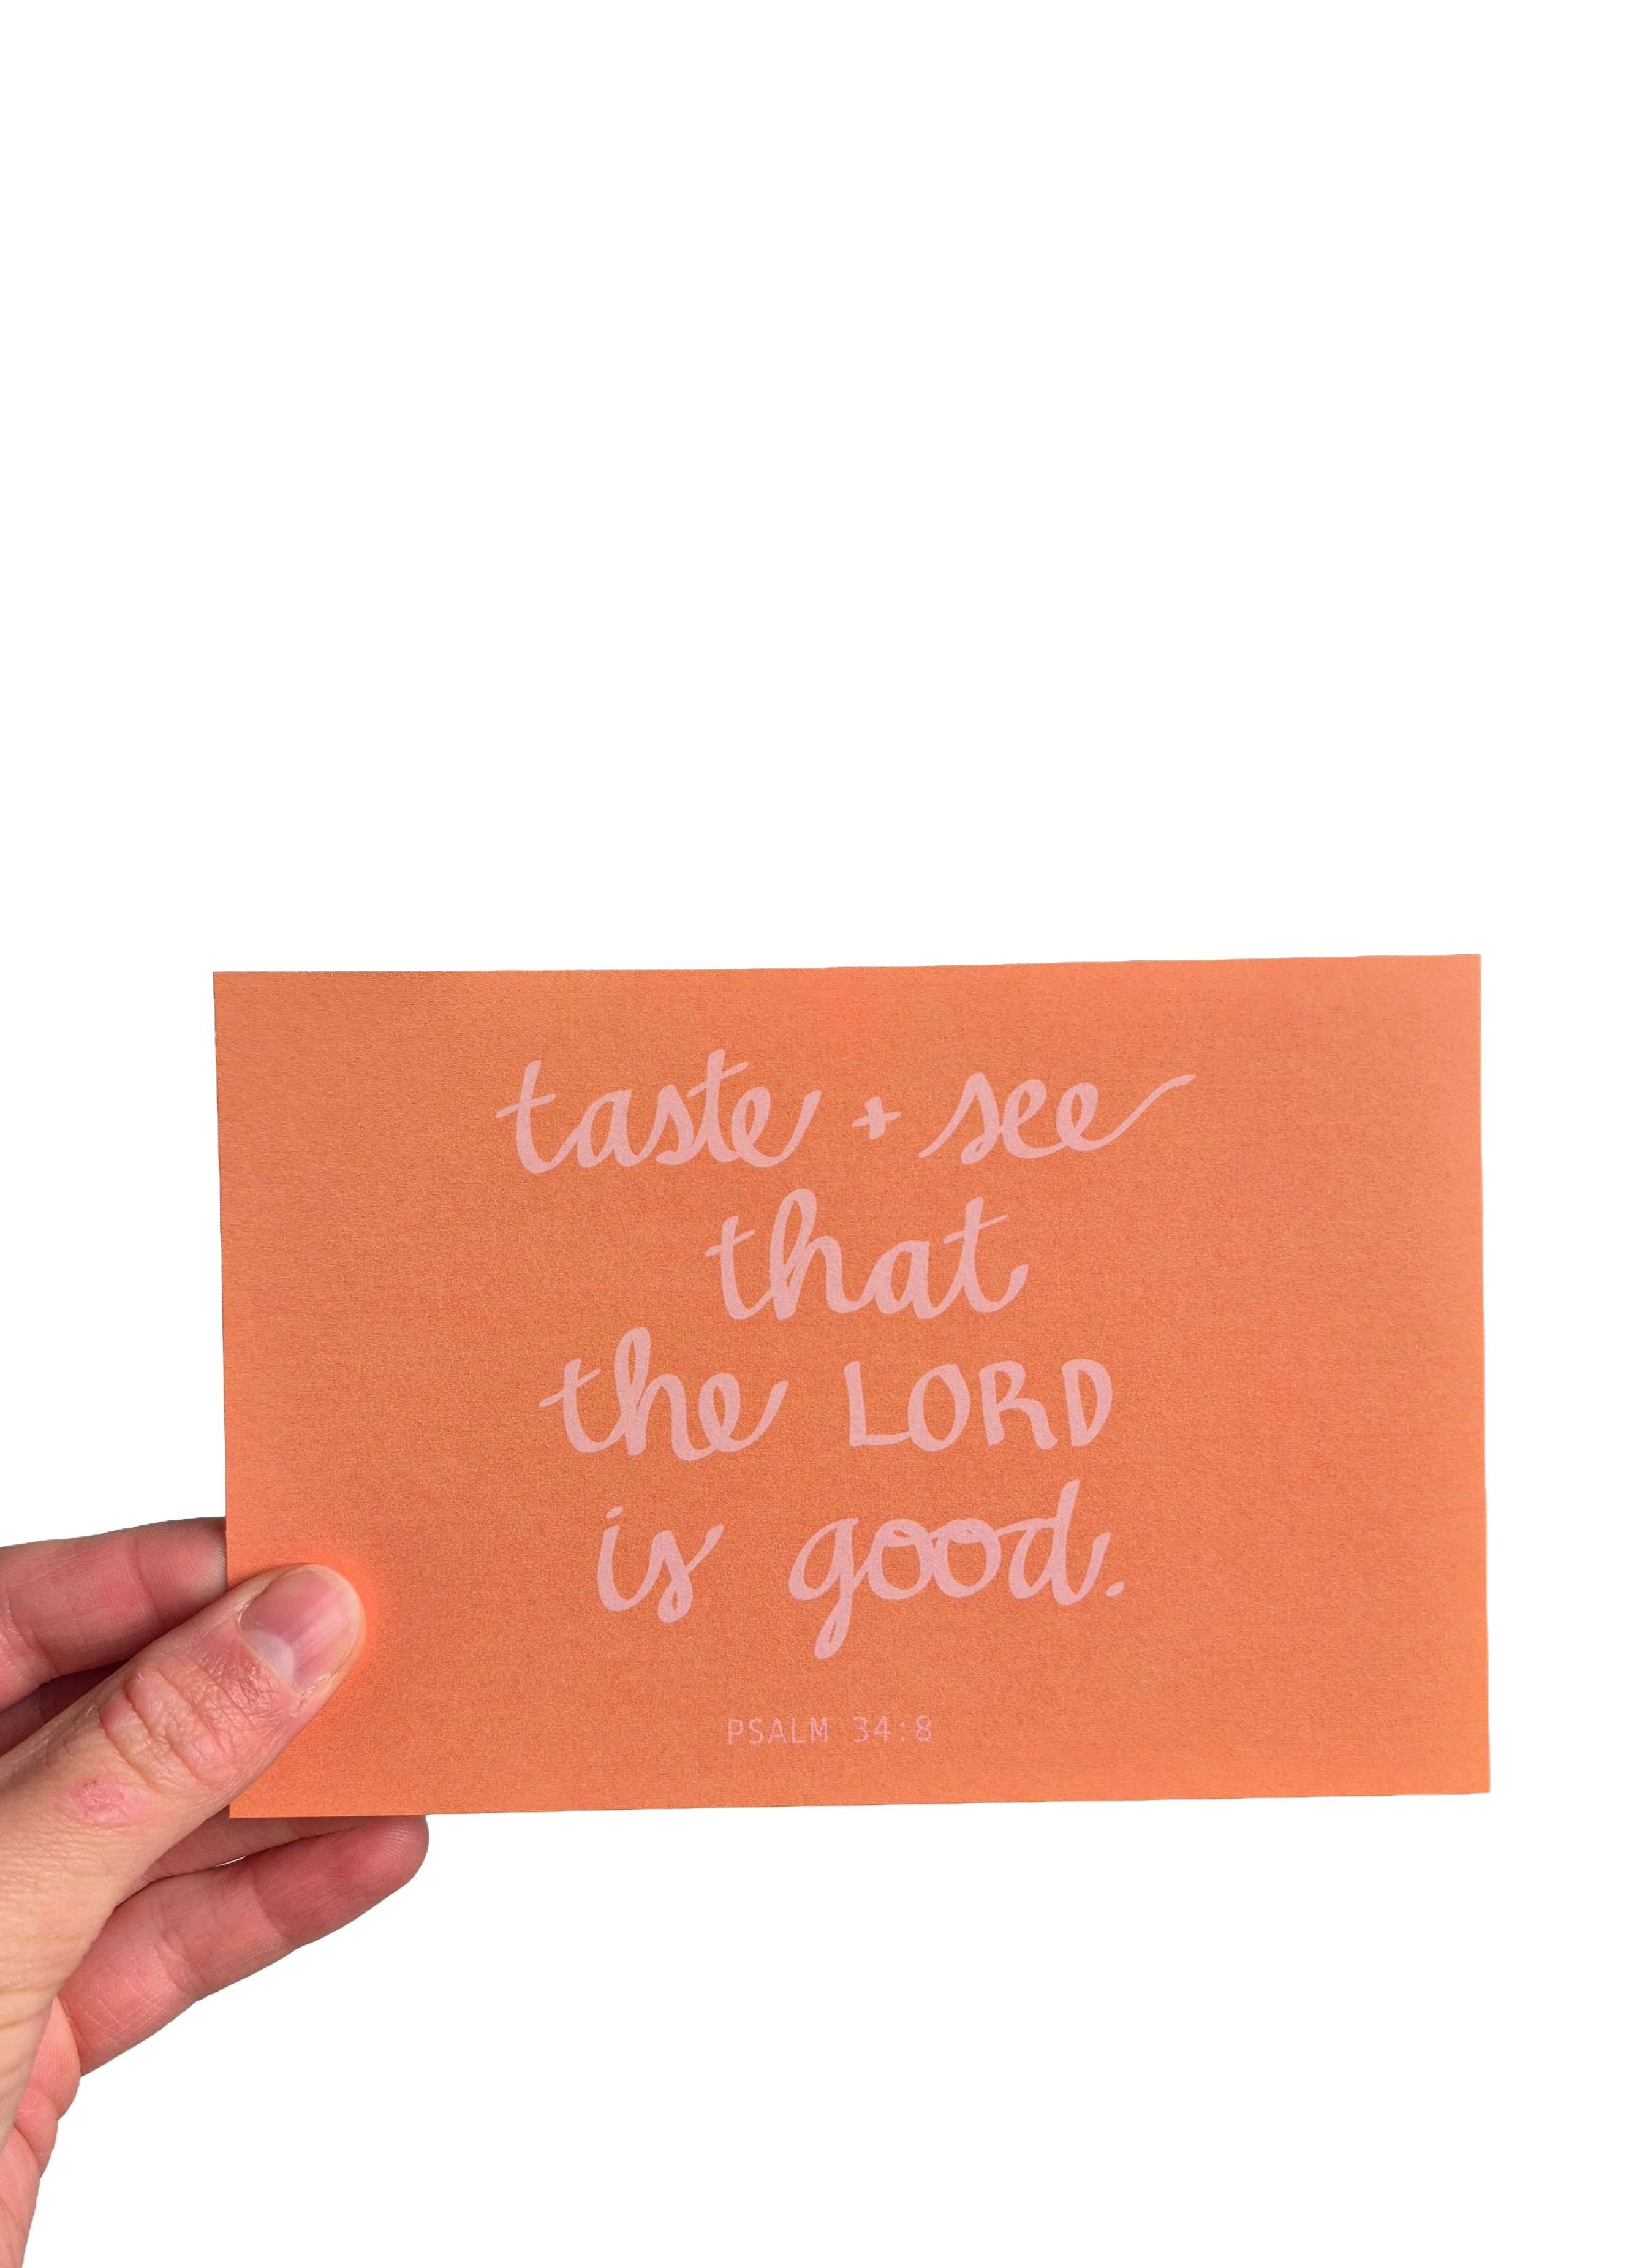 taste + see
that
the LORD
is good.
PSALM 34:8